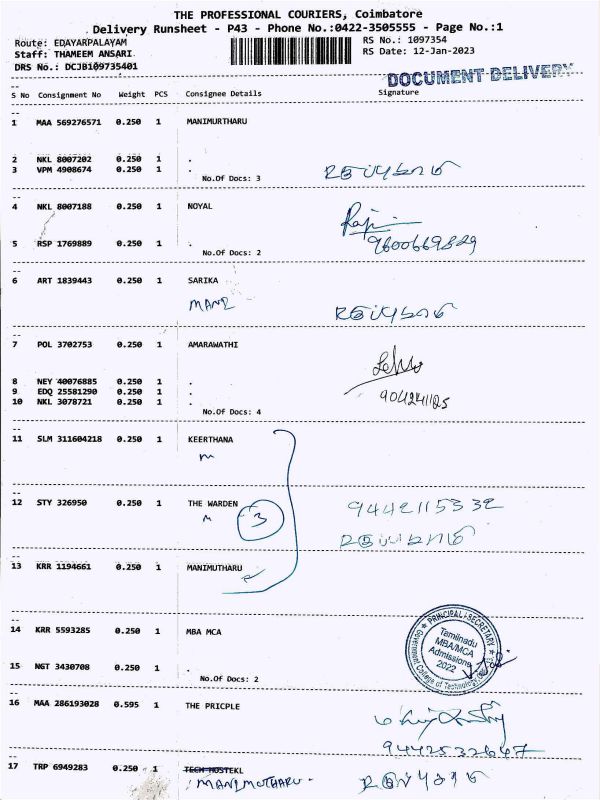 THE PROFESSIONAL COURIERS, Coimbatore
Delivery Runsheet - P43 - Phone No.:0422-3505555 - Page No.:1
Route: EDAYARPALAYAM
RS No.: 1097354
Staff: THAMEEM ANSARI.
RS Date: 12-Jan-2023
DRS No.: DCJB109735401
DOCUMENT DELIVERY
S No Consignment No Weight PCS Consignee Details Signature
1 MAA 569276571 0.250 1 MANIMURTHARU
2 NKL 8007202 0.250 1 .
3 VPM 4908674 0.250 1 .
No.Of Docs: 3
4 NKL 8007188 0.250 1 NOYAL
Raji
9600669829
5 RSP 1769889 0.250 1 .
No.Of Docs: 2
6 ART 1839443 0.250 1 SARIKA
MANI
7 POL 3702753 0.250 1 AMARAWATHI
8 NEY 40076885 0.250 1 .
9 EDQ 25581290 0.250 1 .
10 NKL 3078721 0.250 1 .
9042241125
No.Of Docs: 4
11 SLM 311604218 0.250 1 KEERTHANA
m
12 STY 326950 0.250 1 THE WARDEN
9442115332
m 3
13 KRR 1194661 0.250 1 MANIMUTHARU
14 KRR 5593285 0.250 1 MBA MCA
PRINCIPAL / SECRETARY
Tamilnadu
MBA/MCA
Admissions
2022
Government College of Technology
15 NGT 3430708 0.250 1 .
No.Of Docs: 2
16 MAA 286193028 0.595 1 THE PRICPLE
9442532647
17 TRP 6949283 0.250 1 TECH HOSTEKL
MANIMUTHARU.